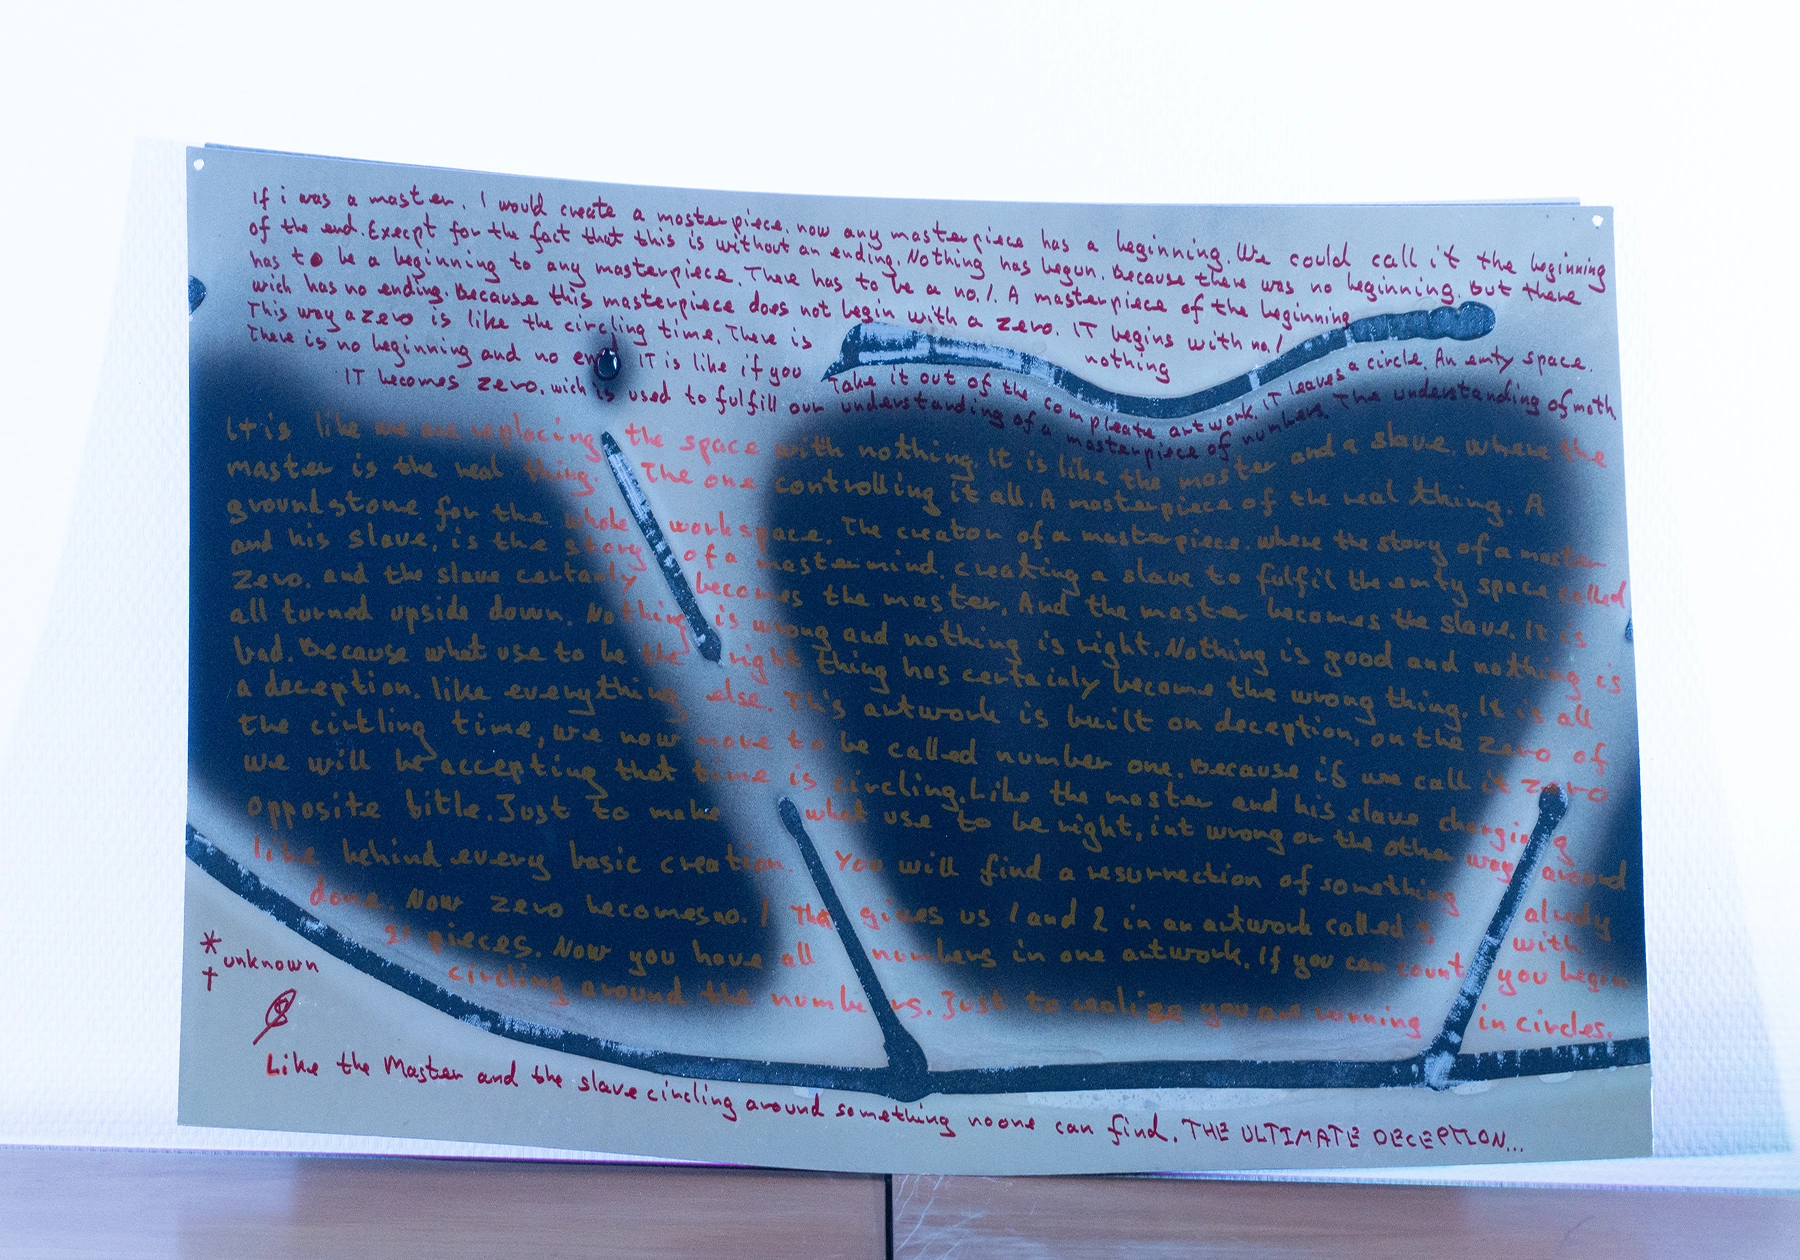 If i was a master. I would create a mosterpiece. now any masterpiece has a beginning. We could call it the beginning
of the end. Execpt for the fact that this is without an ending. Nothing has begun. Because there was no beginning. But there
has to be a beginning to any masterpiece. There has to be a no. 1. A masterpiece of the beginning
wich has no ending. Because this masterpiece does not begin with a zero. IT begins with no 1
This way a zero is like the circling time. There is nothing
There is no beginning and no end IT is like if you Take it out of the compleate artwork. IT leaves a circle. An emty space.
IT becomes zero. wich is used to fulfill our understanding of a masterpiece of numbers. The understanding of math
It is like we are replacing the space with nothing. It is like the master and a slave. where the
master is the real thing. The one controlling it all. A masterpiece of the real thing. A
groundstone for the whole workspace. The creator of a masterpiece. where the story of a master
and his slave. is the story of a mastermind. creating a slave to fulfil the emty space called
zero. and the slave certanly becomes the master. And the master becomes the slave. It is
all turned upside down. Nothing is wrong and nothing is right. Nothing is good and nothing is
bad. Because what use to be the right thing has certainly become the wrong thing. It is all
a deception. like everything else. This artwork is built on deception, on the zero of
the cirkling time, we now move to be called number one. Because if we call it zero
we will be accepting that time is circling. Like the master and his slave changing
opposite bitle. Just to make what use to be right, int wrong or the other way around
like behind every basic creation. You will find a resurrection of something alredy
done. Now zero becomes no. 1 This gives us 1 and 2 in an artwork called with
21 pieces. Now you have all numbers in one artwork. If you can count you begin
circling around the numbers. Just to realize you are running in circles.
* unknown
†
Like the Master and the slave circling around something noone can find. THE ULTIMATE DECEPTION...